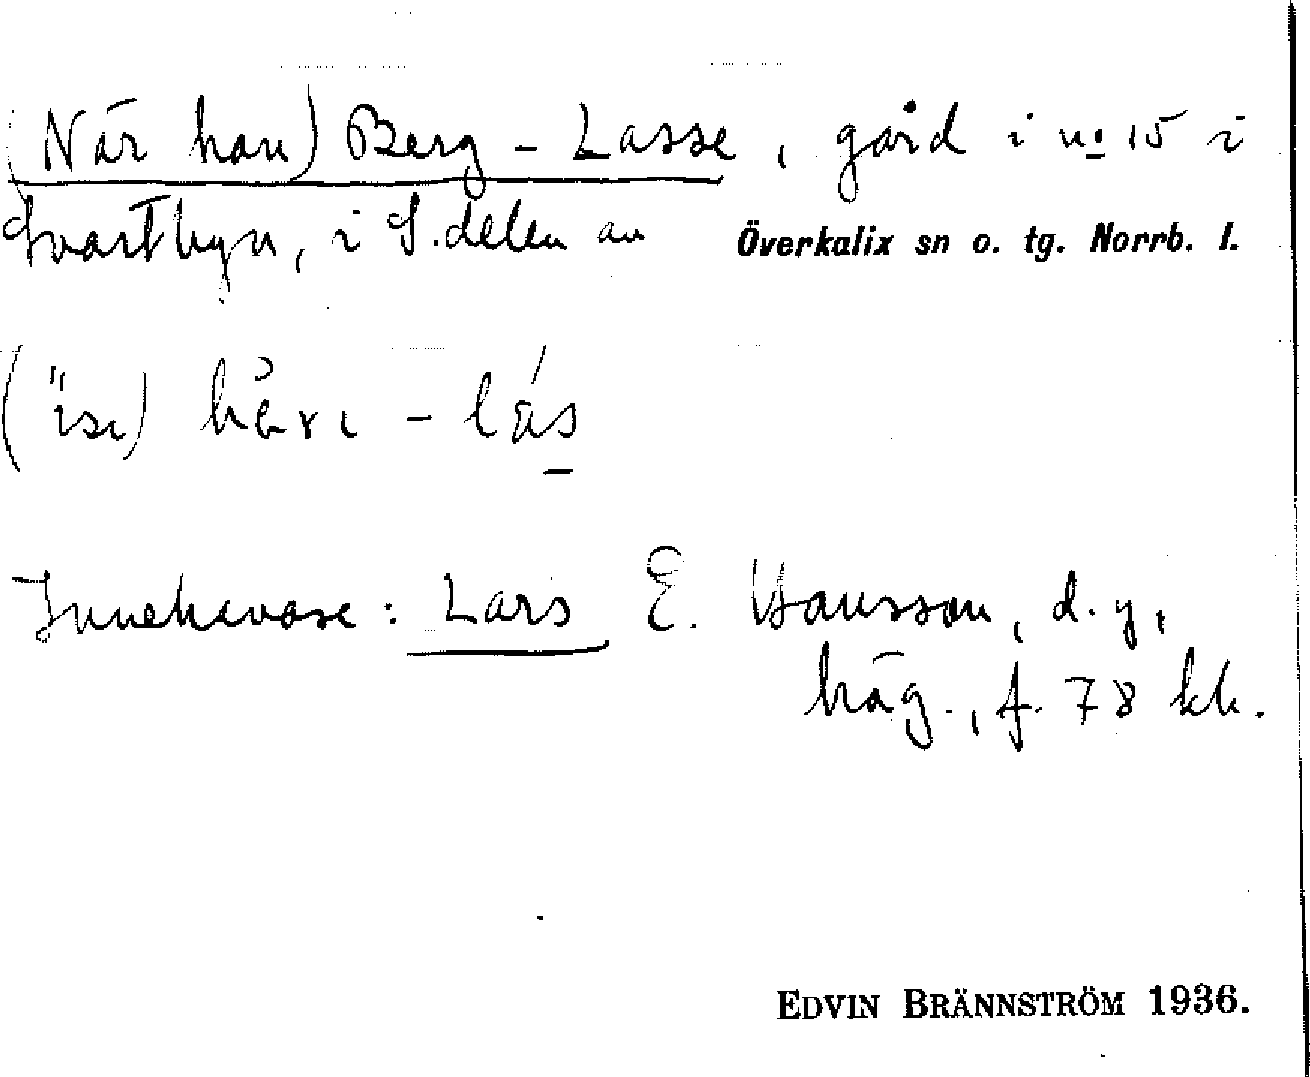 (När han) Berg-Lasse, gård i nº 15 i
Svartbyn, i S. delen av Överkalix sn o. tg. Norrb. l.
Innehavare: Lars E. Hansson, d.y,
häg., f. 78 kh.
EDVIN BRÄNNSTRÖM 1936.